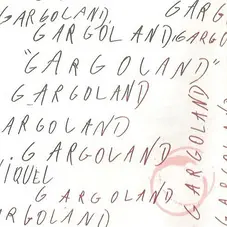 GARGOLAND,
GARGOLAND
GARGOLAND.
GARGO
"GARGOLAND"
GARGOLAND
ARGOLAND
. GARGOLAND
IQUEL
GARGOLAND
ARGOLAND
GARGOLAND
GARGOLA